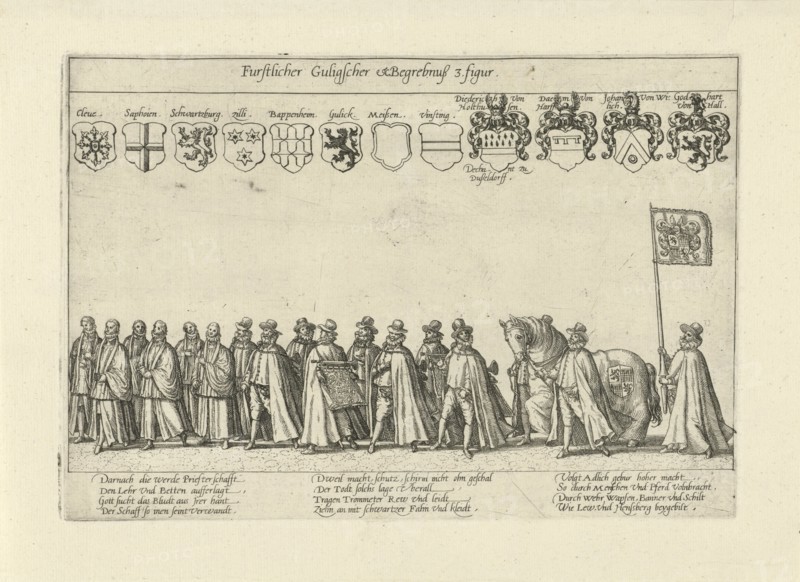 Furstlicher Guligscher &c Begrebnuß 3. figur.
Cleve. Saphoien. Schwartzburg. Zilli. Bappenheim. Gulick. Meißen. Vinsting.
Diederich Von Holthusen.
Dechant zu Dusseldorff.
Von Harff
Johan Von
Godhart Von Hall.
Darnach die werde Priesterschafft
Den Lehr Vnd Betten aufferlagt
Gott sucht das Bludt aus
Der Schaff so inen seint verwandt.
Dweil macht, schutz, schirm nicht om geschal
Der Todt solchs lage uberall
Tragen Trommeter Rew Vnd leidt
Ziehn an mit schwartzer Fahn Vnd kleidt.
Volgt Adlich gebur hoher macht
So durch Menschen Vnd Pferd Volnbracht.
Durch Wehr Wapfen, Banner Vnd Schilt
Wie Lew Vnd beygebilt.